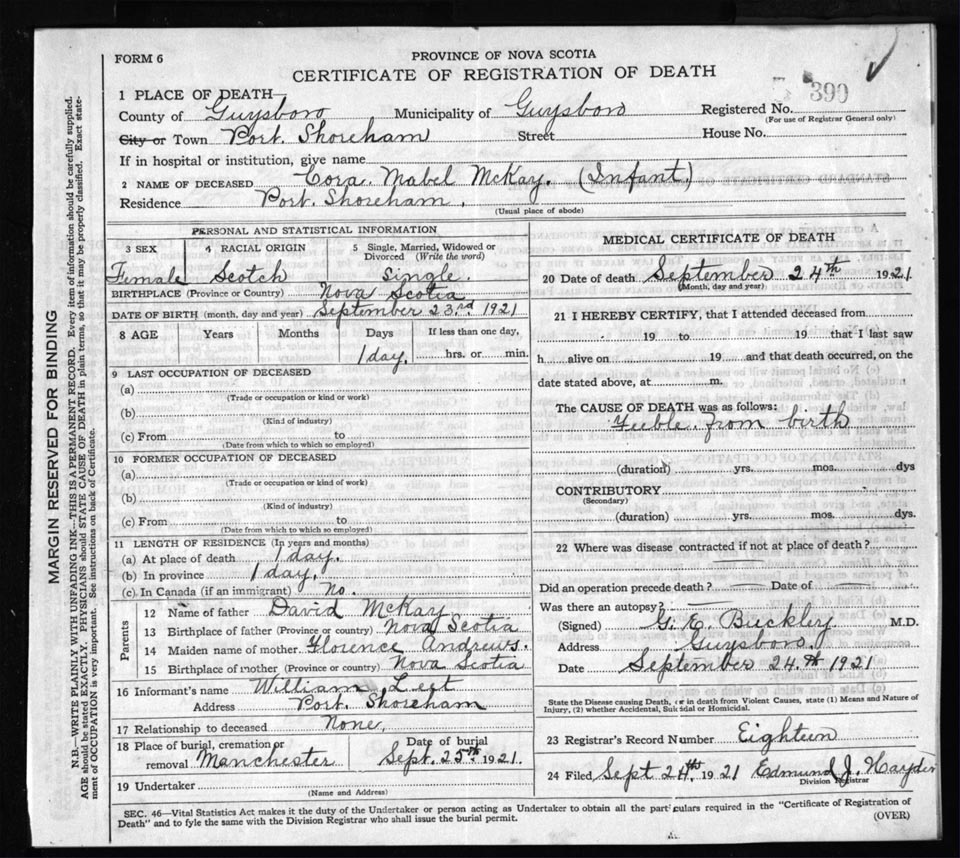 FORM 6
PROVINCE OF NOVA SCOTIA
CERTIFICATE OF REGISTRATION OF DEATH
390
1 PLACE OF DEATH—
County of Guysboro Municipality of Guysboro Registered No.
(For use of Registrar General only)
City or Town Port Shoreham Street House No.
If in hospital or institution, give name
2 NAME OF DECEASED Cora Mabel McKay. (Infant)
Residence Port Shoreham.
(Usual place of abode)
PERSONAL AND STATISTICAL INFORMATION
3 SEX 4 RACIAL ORIGIN 5 Single, Married, Widowed or Divorced (Write the word)
Female Scotch single.
BIRTHPLACE (Province or Country) Nova Scotia
DATE OF BIRTH (month, day and year) September 23rd 1921
8 AGE Years Months Days If less than one day,
1 day. hrs. or min.
9 LAST OCCUPATION OF DECEASED
(a)
(Trade or occupation or kind or work)
(b)
(Kind of industry)
(c) From to
(Date from which to which so employed)
10 FORMER OCCUPATION OF DECEASED
(a)
(Trade or occupation or kind of work)
(b)
(Kind of industry)
(c) From to
(Date from which to which so employed)
11 LENGTH OF RESIDENCE (In years and months)
(a) At place of death 1 day.
(b) In province 1 day.
(c) In Canada (if an immigrant) No.
Parents
12 Name of father David McKay
13 Birthplace of father (Province or country) Nova Scotia
14 Maiden name of mother Florence Andrews.
15 Birthplace of mother (Province or country) Nova Scotia
16 Informant's name William
Address Port Shoreham
17 Relationship to deceased None.
18 Place of burial, cremation or removal Manchester
Date of burial Sept. 25th 1921.
19 Undertaker
(Name and Address)
MEDICAL CERTIFICATE OF DEATH
20 Date of death September 24th 1921
(Month, day and year)
21 I HEREBY CERTIFY, that I attended deceased from
19 to 19 that I last saw
h alive on 19 and that death occurred, on the
date stated above, at m.
The CAUSE OF DEATH was as follows:
Feeble from birth
(duration) yrs. mos. dys
CONTRIBUTORY
(Secondary)
(duration) yrs. mos. dys.
22 Where was disease contracted if not at place of death?
Did an operation precede death? Date of
Was there an autopsy?
(Signed) G. E. Buckley M.D.
Address Guysboro.
Date September 24th 1921
State the Disease causing Death, or in death from Violent Causes, state (1) Means and Nature of Injury, (2) whether Accidental, Suicidal or Homicidal.
23 Registrar's Record Number Eighteen
24 Filed Sept 24th 1921 Edmund J. Hayden
Division Registrar
SEC. 46—Vital Statistics Act makes it the duty of the Undertaker or person acting as Undertaker to obtain all the particulars required in the "Certificate of Registration of
Death" and to fyle the same with the Division Registrar who shall issue the burial permit.
(OVER)
MARGIN RESERVED FOR BINDING
N.B.—WRITE PLAINLY WITH UNFADING INK—THIS IS A PERMANENT RECORD. Every item of information should be carefully supplied.
AGE should be stated EXACTLY. PHYSICIANS should STATE CAUSE OF DEATH in plain terms, so that it may be properly classified. Exact state-
ment of OCCUPATION is very important. See instructions on back of Certificate.